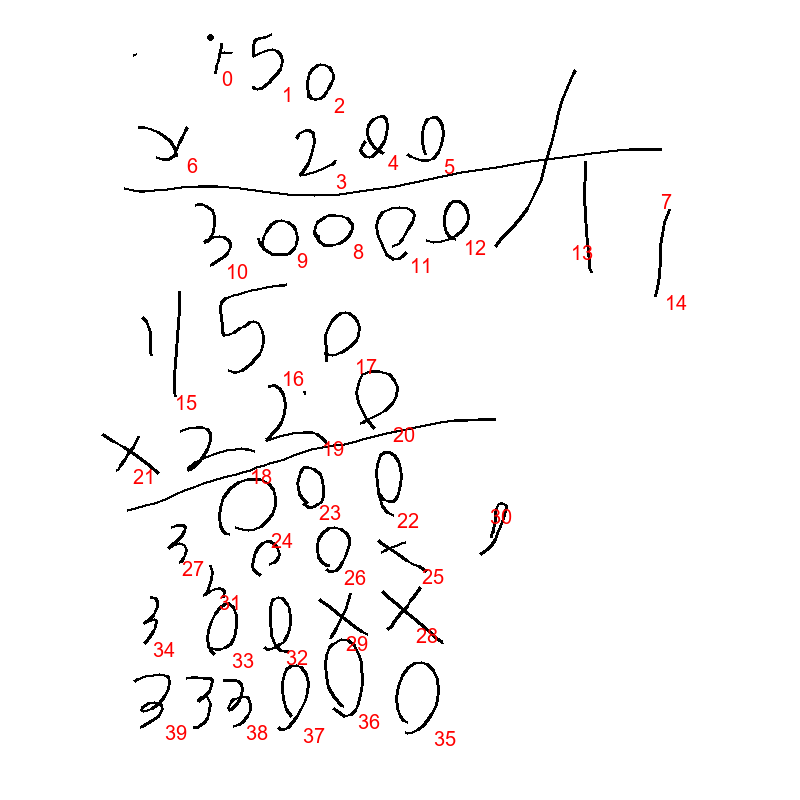 150
0 1 2
× 200
6 3 4 5
30000 / 1 1
10 9 8 11 12 13 7 14
1150
15 16 17
× 220
21 18 19 20
000
24 23 22
3 00 ×
27 26 25 30
3 3 00 × ×
34 31 33 32 29 28
333000
39 38 37 36 35